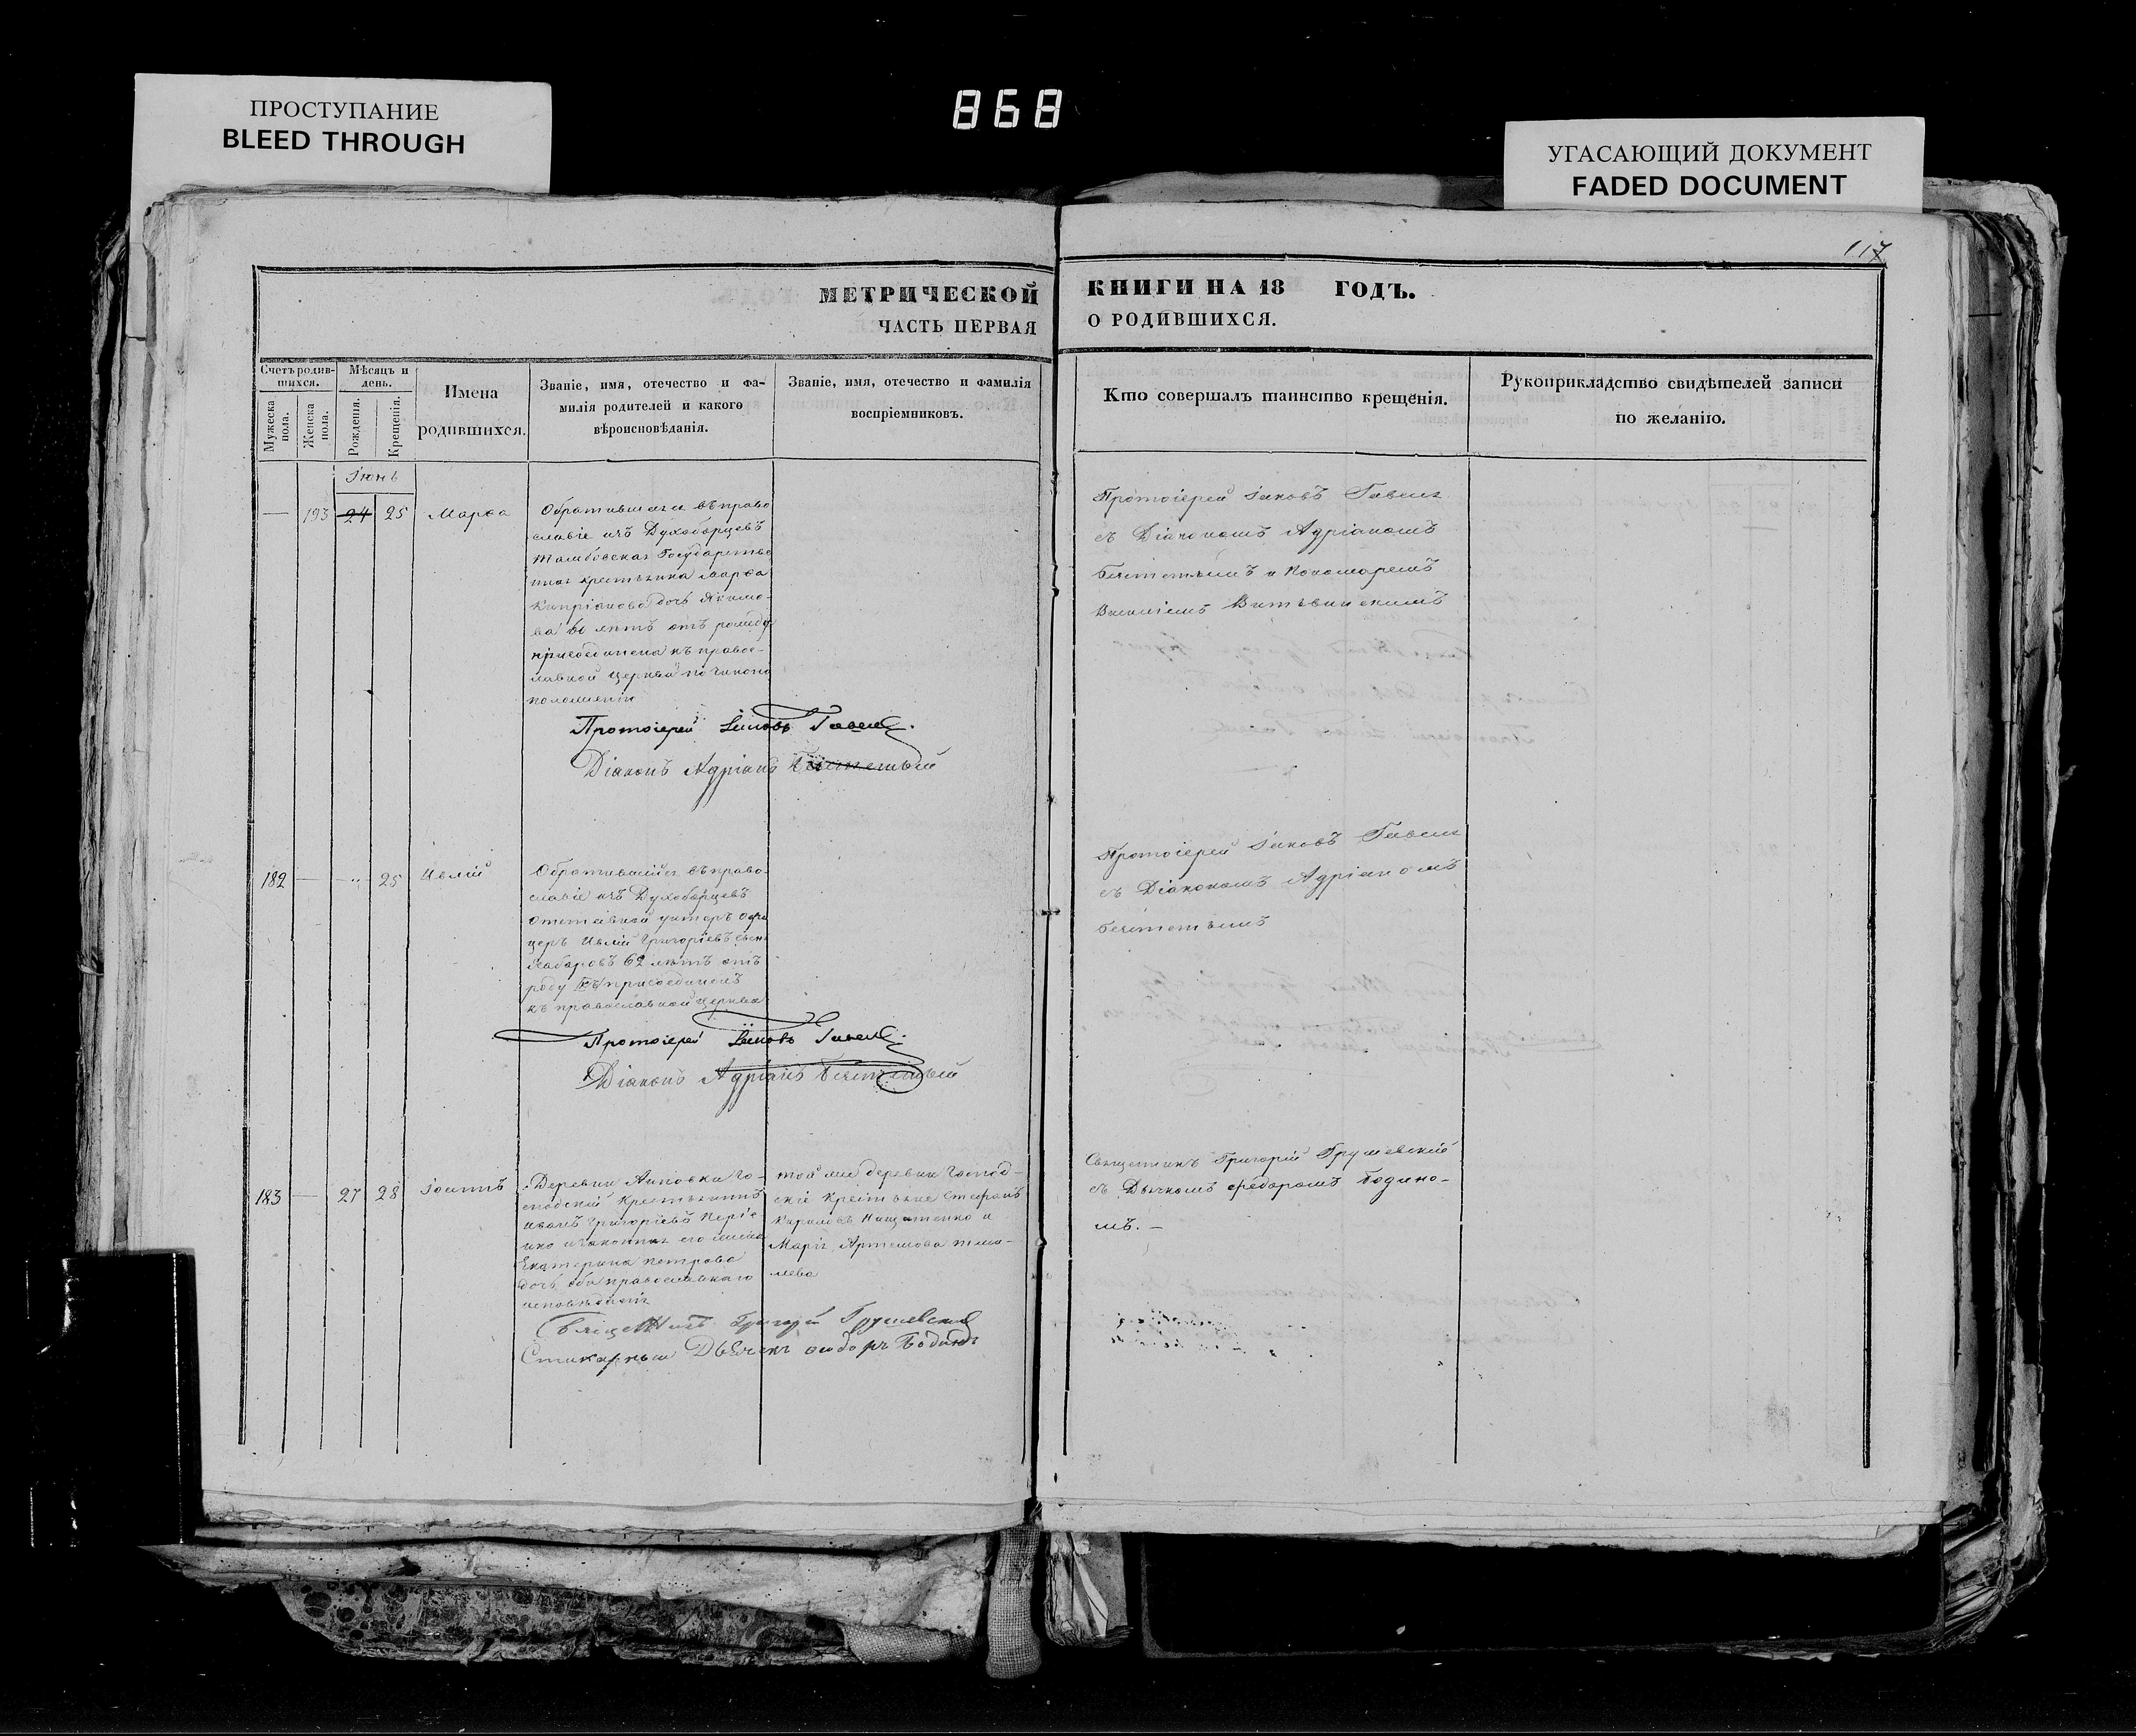 ПРОСТУПАНИЕ
BLEED THROUGH
868
УГАСАЮЩИЙ ДОКУМЕНТ
FADED DOCUMENT
117
МЕТРИЧЕСКОЙ
ЧАСТЬ ПЕРВАЯ
КНИГИ НА 18 ГОДЪ.
О РОДИВШИХСЯ.
Счетъ родив-
шихся.
Мужеска
пола.
Женска
пола.
Мѣсяцъ и
день.
Рожденія.
Крещенія.
Имена
родившихся.
Званіе, имя, отечество и фа-
милія родителей и какого
вѣроисповѣданія.
Званіе, имя, отечество и фамилія
воспріемниковъ.
Кто совершалъ таинство крещенія.
Рукоприкладство свидѣтелей записи
по желанію.
Іюнь
193 24 25 Марѳа
Обратившаяся въ право
славіе изъ Духоборцевъ
Тамбовская Государстве
нная крестьянка Марѳа
Кипріанова дочь Якимо-
ва лѣтъ отъ роду
присоединена къ правос-
лавной церкви по чинопо
положенію
Протоіерей Іаковъ
Діаконъ Адріанъ
Протоіерей Іаковъ
съ Діакономъ Адріаномъ
и Пономаремъ
Василіемъ
182 25 Ивлій
Обратившійся въ право-
славіе изъ Духоборцевъ
Отставной унтеръ офи
церъ Ивлій Григорьевъ сынъ
62 лѣтъ отъ
роду присоединенъ
къ православной церкви
Протоіерей Іаковъ
Діаконъ Адріанъ
Протоіерей Іаковъ
съ Діакономъ Адріаномъ
183 27 28 Іоаннъ
Деревни Анновки го-
сподскій крестьянинъ
Иванъ Григорьевъ
и законная его жена
Екатерина Петрова
дочь оба православнаго
исповѣданія
той же деревни господ-
скіе крестьяне Стефанъ
Кириловъ и
Марія Артемова
Священникъ Григорій Грушевскій
Стихарный Дьячекъ
Священникъ Григорій Грушевскій
съ Дьячкомъ Ѳедоромъ Бодино-
мъ.